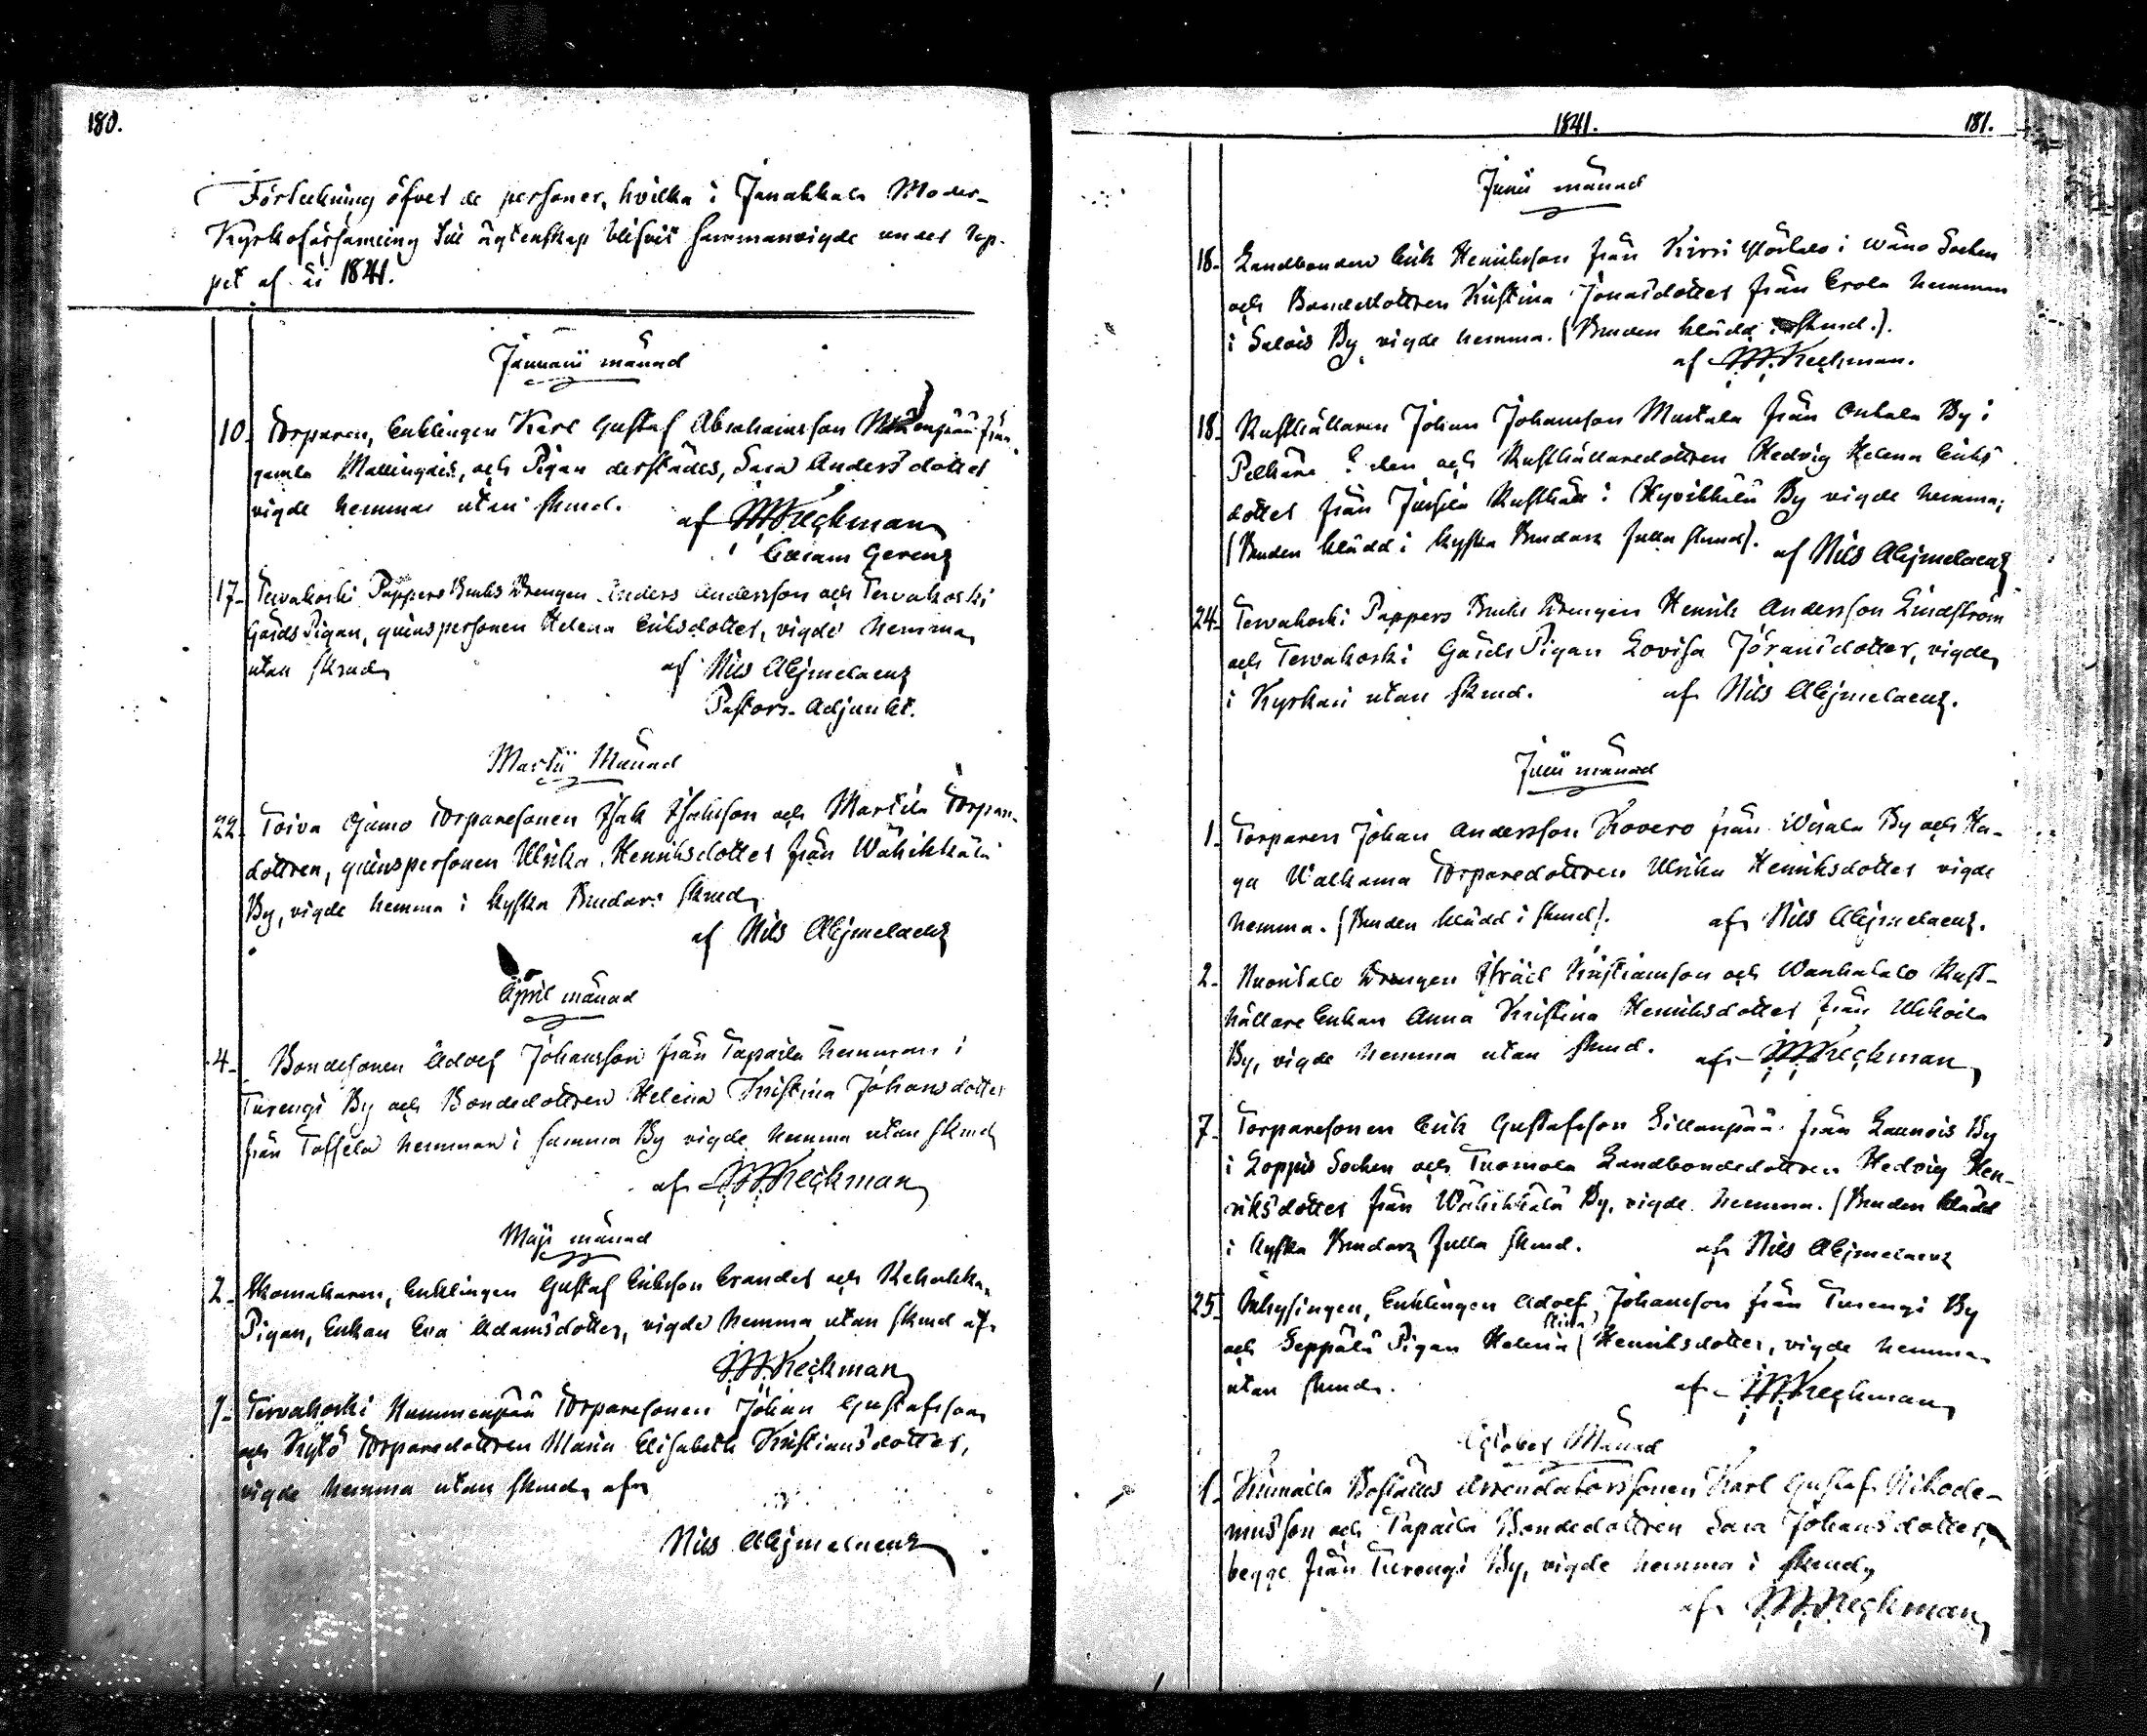 180.
Förteckning öfver de personer, hvilka i Janakkala Moder-
Kyrkoförsamling till ägtenskap blifvit sammanvigde under lop-
pet af år 1841.
Januarii månad
10. Torparen, Enklingen Karl Gustaf Abrahamsson från
gamla Mallingais, och Pigan derstädes, Sara Anders dotter
vigde hemma utan skrud. af
Gerenz
17. Tervakoski Pappers Bruks Drengen Anders Andersson och Tervakoski
Gårds Pigan, qvinspersonen Helena Eriksdotter, vigde hemma
utan skrud af Nils Alijmelaeus
Pastors-Adjunkt.
Martii Månad
22. Toiva Ojamo Torparesonen Isak Isaksson och Martila Torpar-
dottren, qvinspersonen Ulrika Henriksdotter från Wähikkälä
By, vigde hemma i kyska Brudars skrud
af Nils Alijmelaeus
April månad
4. Bondesonen Adolf Johansson från Tapaila hemman i
Turengi By och Bondedottren Helena Kristina Johansdotter
från Tasfela hemman i samma By vigde hemma utan skrud
af
Maji månad
2. Skomakaren, Enklingen Gustaf Eriksson Grander och Rehakka
Pigan, Enkan Eva Adamsdotter, vigde hemma utan skrud af
9. Tervakoski Nummenpää Torparesonen Johan Gustafsson
och Kytö Torparedottren Maria Elisabeth Kristiansdotter,
vigde hemma utan skrud, af
Nils Alijmelaeus
1841.
181.
Junii månad
18. Landbonden Erik Henriksson från Kirri i Wåno Socken
och Bondedottren Kristina Jonasdotter från Erola hemman
i Salois By vigde hemma. (Bruden klädd i skrud.).
af
18. Rusthållaren Johan Johansson Mattala från Onkala By i
Pelkäne och Rusthållaredottren Hedvig Helena Eriks
dotter från Jussila Rusthåll i Hyvikkälä By vigde hemma;
(Bruden klädd i kyska Brudars fulla skrud). af Nils Alijmelaeus
24. Tervakoski Pappers Bruks Drengen Henrik Andersson Lindström
och Tervakoski Gårds Pigan Lovisa Göransdotter, vigde
i Kyrkan utan skrud. af Nils Alijmelaeus.
Julii månad
1. Torparen Johan Andersson Kovero från Wirala By och Ha-
ga Walkama Torparedottren Ulrika Henriksdotter vigde
hemma. (Bruden klädd i skrud). af Nils Alijmelaeus.
2. Nuoritalo Drengen Israel Kristiansson och Wanhatalo Rust-
hållare Enkan Anna Kristina Henriksdotter från Uhkoila
By, vigde hemma utan skrud. af
7. Torparesonen Erik Gustafsson Sillanpää från Launois By
i Loppis Socken och Tuomola Landbondedottren Hedvig Hen-
riksdotter från Wähikkälä By, vigde hemma. (Bruden klädd
i kyska Brudars fulla skrud. af Nils Alijmelaeus
25. Inhysingen, Enklingen Adolf Johansson från Turengi By
och Seppälä Pigan Helena Stina Henriksdotter, vigde hemma
utan skrud. af
October Månad
1. Boställs Arrendatorssonen Karl Gustaf Nikode-
musson och Tapaila Bondedottren Sara Johansdotter,
begge från Turengi By, vigde hemma i skrud,
af